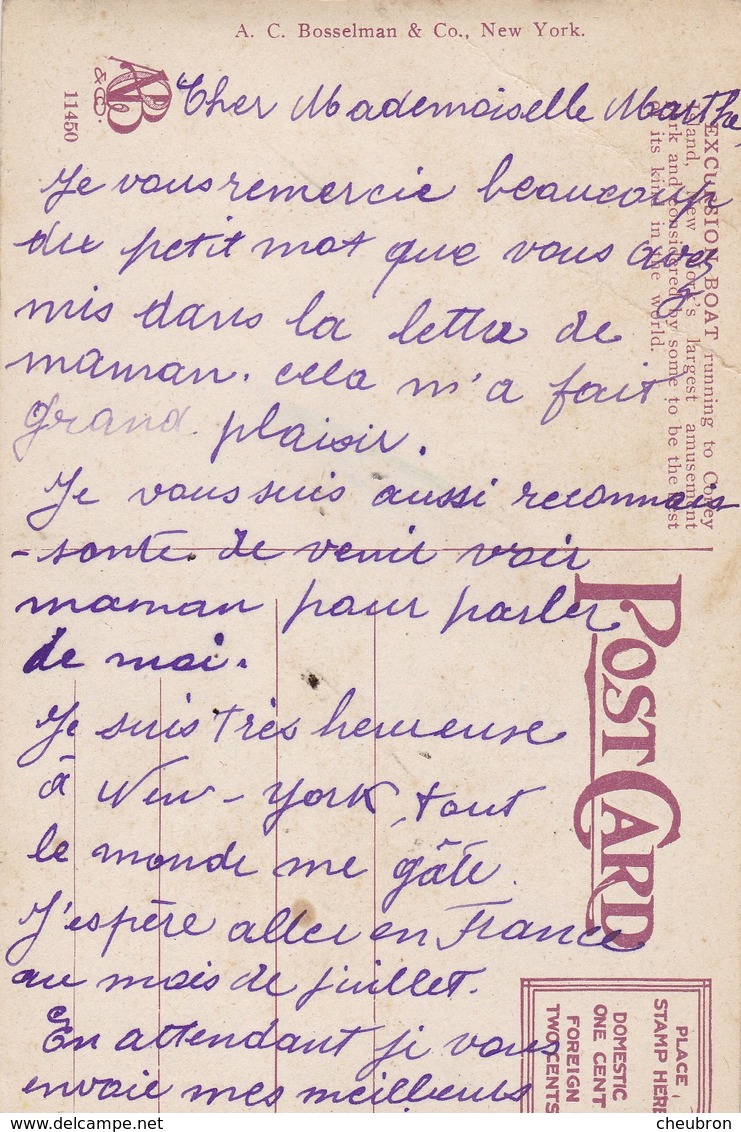 A. C. Bosselman & Co., New York.
11450
Cher Mademoiselle Marthe,
Je vous remercie beaucoup
du petit mot que vous avez
mis dans la lettre de
maman. cela m'a fait
grand plaisir.
Je vous suis aussi reconnais
-sante de venir voir
maman pour parler
de moi.
Je suis très heureuse
à New-York, tout
le monde me gâte.
J'espère aller en France
au mois de juillet.
En attendant je vous
envoie mes meilleurs
EXCURSION BOAT running to Coney
Island, New York's largest amusement
park and considered by some to be the best
of its kind in the world.
POST CARD
PLACE
STAMP HERE
DOMESTIC
ONE CENT
FOREIGN
TWO CENTS
delcampe.net
cheubron